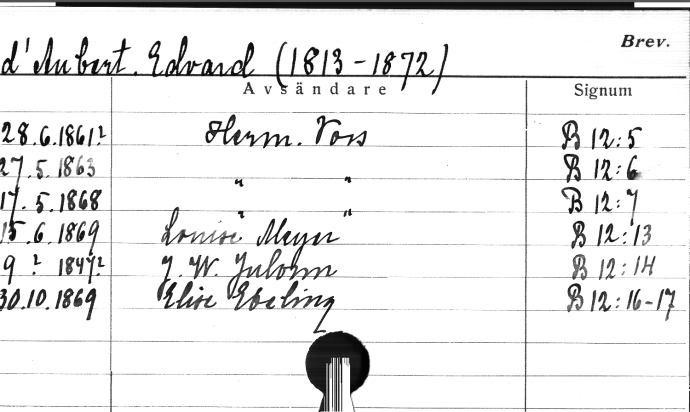 Brev.
d'Aubert. Edvard (1813-1872)
Avsändare Signum
28.6.1861? Herm. Vors B 12:5
27.5.1863 " " B 12:6
17.5.1868 " " B 12:7
15.6.1869 Louise Meyer B 12:13
9 ? 184?? J. W. B 12:14
30.10.1869 Elise Ebeling B 12:16-17